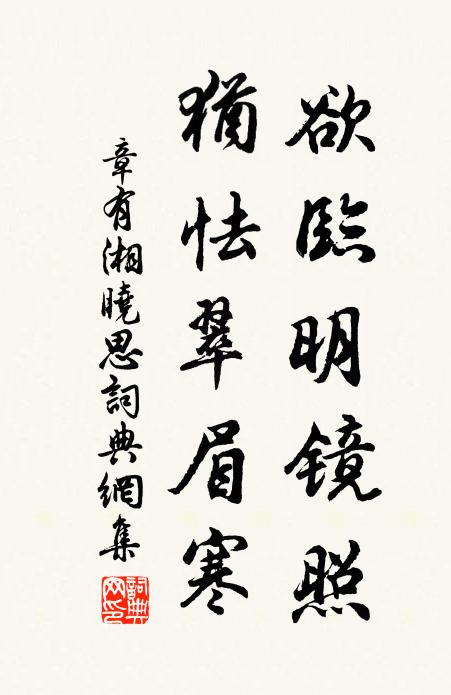 欲臨明镜照
猶怯翠眉寒
章有湘曉思詞典網集
詞典网印